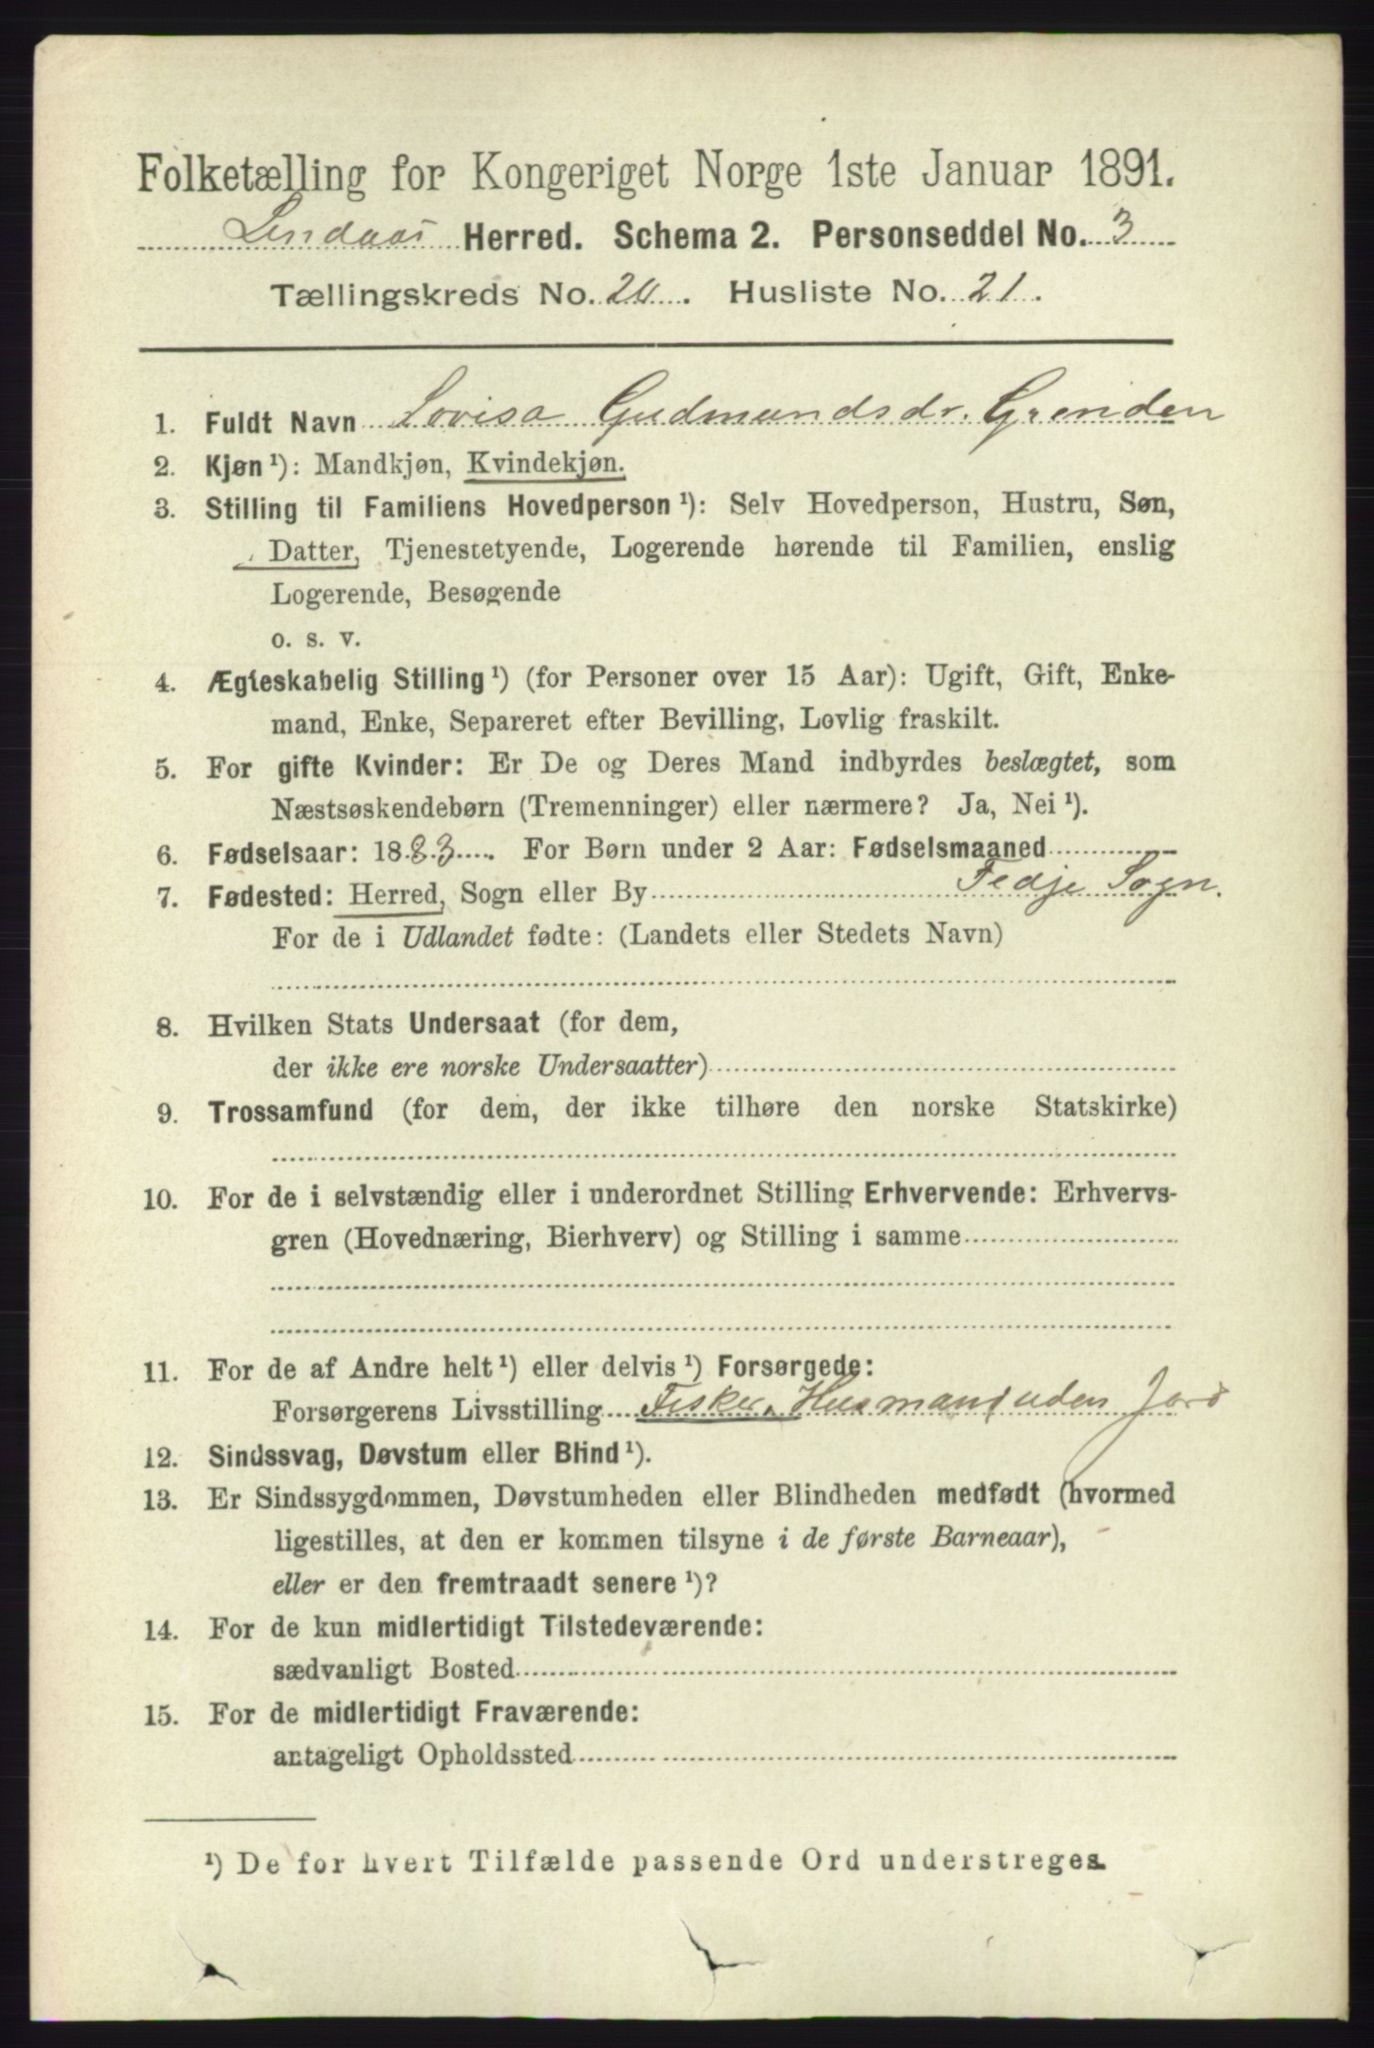 Folketælling for Kongeriget Norge 1ste Januar 1891.
Lindaas Herred. Schema 2. Personseddel No. 3
Tællingskreds No. 20. Husliste No. 21.
1. Fuldt Navn Lovisa Gudmundsdr. Grinden
2. Kjøn ¹): Mandkjøn, Kvindekjøn.
3. Stilling til Familiens Hovedperson ¹): Selv Hovedperson, Hustru, Søn,
Datter, Tjenestetyende, Logerende hørende til Familien, enslig
Logerende, Besøgende
o. s. v.
4. Ægteskabelig Stilling ¹) (for Personer over 15 Aar): Ugift, Gift, Enke-
mand, Enke, Separeret efter Bevilling, Lovlig fraskilt.
5. For gifte Kvinder: Er De og Deres Mand indbyrdes beslægtet, som
Næstsøskendebørn (Tremenninger) eller nærmere? Ja, Nei ¹).
6. Fødselsaar: 1883. For Børn under 2 Aar: Fødselsmaaned
7. Fødested: Herred, Sogn eller By Fedje Sogn.
For de i Udlandet fødte: (Landets eller Stedets Navn)
8. Hvilken Stats Undersaat (for dem,
der ikke ere norske Undersaatter)
9. Trossamfund (for dem, der ikke tilhøre den norske Statskirke)
10. For de i selvstændig eller i underordnet Stilling Erhvervende: Erhvervs-
gren (Hovednæring, Bierhverv) og Stilling i samme
11. For de af Andre helt ¹) eller delvis ¹) Forsørgede:
Forsørgerens Livsstilling Fisker, Husmand uden Jord
12. Sindssvag, Døvstum eller Blind ¹).
13. Er Sindssygdommen, Døvstumheden eller Blindheden medfødt (hvormed
ligestilles, at den er kommen tilsyne i de første Barneaar),
eller er den fremtraadt senere ¹)?
14. For de kun midlertidigt Tilstedeværende:
sædvanligt Bosted
15. For de midlertidigt Fraværende:
antageligt Opholdssted
¹) De for hvert Tilfælde passende Ord understreges.